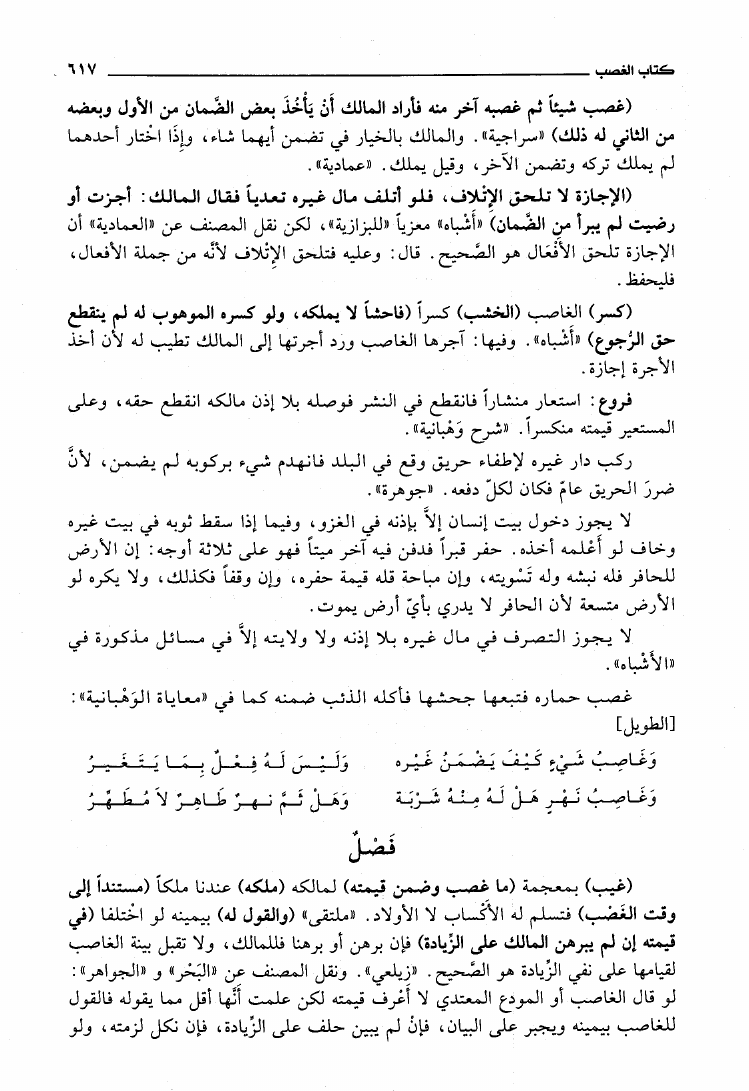 كتاب الغصب ٦١٧
(غصب شيئاً ثم غصبه آخر منه فأراد المالك أَنْ يَأْخُذَ بعض الضَّمان من الأول وبعضه
من الثاني له ذلك) «سراجية». والمالك بالخيار في تضمن أيهما شاء، وإِذَا اخْتار أحدهما
لم يملك تركه وتضمن الآخر، وقيل يملك. «عمادية».
(الإجازة لا تلحق الإِتْلاف، فلو أتلف مال غيره تعدياً فقال المالك: أجزت أو
رضيت لم يبرأ من الضَّمان) «أَشْباه» معزياً «للبزازية»، لكن نقل المصنف عن «العمادية» أن
الإجازة تلحق الأَفْعَال هو الصَّحيح. قال: وعليه فتلحق الإِتْلاف لأنَّه من جملة الأفعال،
فليحفظ.
(كسر) الغاصب (الخشب) كسراً (فاحشاً لا يملكه، ولو كسره الموهوب له لم ينقطع
حق الرُّجوع) «أَشْباه». وفيها: آجرها الغاصب ورد أجرتها إلى المالك تطيب له لأن أخذ
الأجرة إجازة.
فروع: استعار منشاراً فانقطع في النشر فوصله بلا إذن مالكه انقطع حقه، وعلى
المستعير قيمته منكسراً. «شرح وَهْبانية».
ركب دار غيره لإطفاء حريق وقع في البلد فانهدم شيء بركوبه لم يضمن، لأنَّ
ضررَ الحريق عامّ فكان لكلّ دفعه. «جوهرة».
لا يجوز دخول بيت إنسان إلاَّ بإذنه في الغزو، وفيما إذا سقط ثوبه في بيت غيره
وخاف لو أَعْلمه أخذه. حفر قبراً فدفن فيه آخر ميتاً فهو على ثلاثة أوجه: إن الأرض
للحافر فله نبشه وله تَسْويته، وإن مباحة فله قيمة حفره، وإن وقفاً فكذلك، ولا يكره لو
الأرض متسعة لأن الحافر لا يدري بأيّ أرض يموت.
لا يجوز التصرف في مال غيره بلا إذنه ولا ولايته إلاَّ في مسائل مذكورة في
«الأَشْباه».
غصب حماره فتبعها جحشها فأكله الذئب ضمنه كما في «معاياة الوَهْبانية»:
[الطويل]
وَغَاصِبُ شَيْءٍ كَيْفَ يَضْمَنُ غَيْره وَلَيْسَ لَهُ فِعْلٌ بِمَا يَتَغَيرُ
وَغَاصِبُ نَهْرٍ هَلْ لَهُ مِنْهُ شَرْبَة وَهَلْ ثَمَّ نهرٌ طَاهِرٌ لاَ مُطَهِّرُ
فَصْلٌ
(غيب) بمعجمة (ما غصب وضمن قيمته) لمالكه (ملكه) عندنا ملكاً (مستنداً إلى
وقت الغَصْب) فتسلم له الأَكْساب لا الأولاد. «ملتقى» (والقول له) بيمينه لو اختلفا (في
قيمته إن لم يبرهن المالك على الزِّيادة) فإن برهن أو برهنا فللمالك، ولا تقبل بينة الغاصب
لقيامها على نفي الزِّيادة هو الصَّحيح. «زيلعي». ونقل المصنف عن «البَحْر» و «الجواهر»:
لو قال الغاصب أو المودع المعتدي لا أَعْرف قيمته لكن علمت أنَّها أقل مما يقوله فالقول
للغاصب بيمينه ويجبر على البيان، فإنْ لم يبين حلف على الزِّيادة، فإن نكل لزمته، ولو